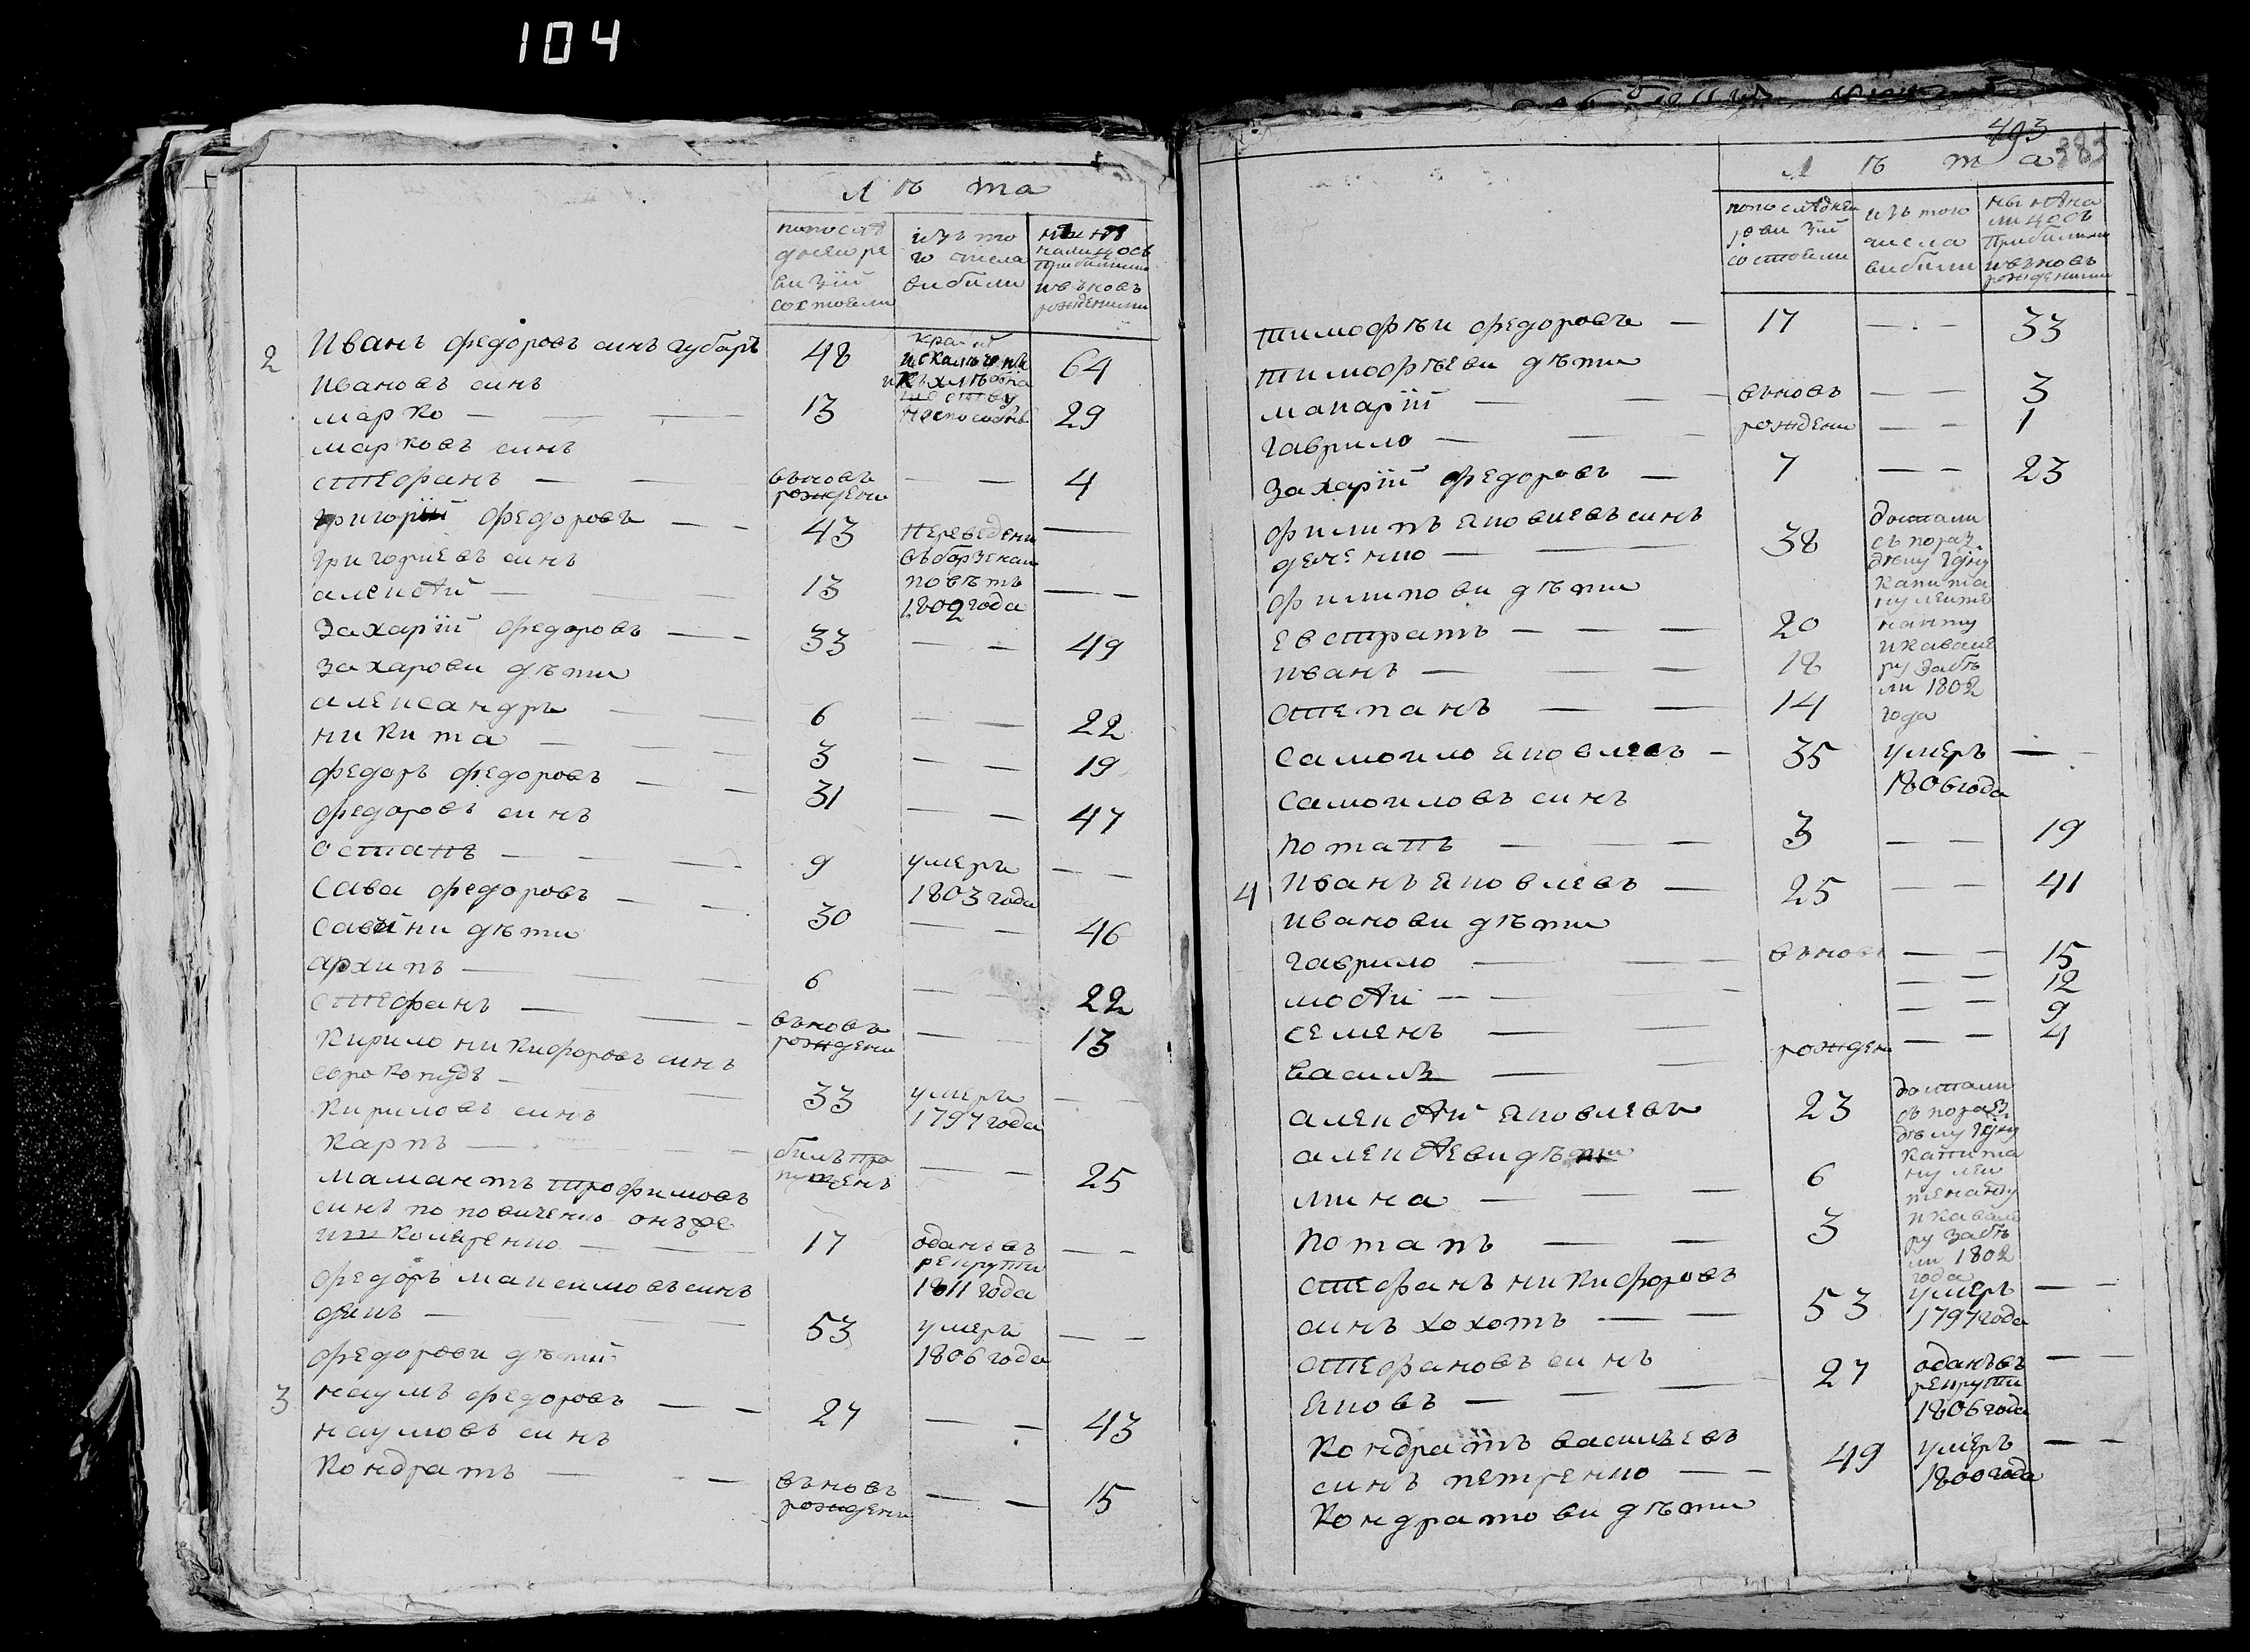 104
Лѣта
попослѣ
днеи ре
визїй
состояли
изъ то
го числа
вибили
нынѣ
налицось
прибилими
ивъновь
рожденими
2 Иванъ федоровъ синъ губарь 48 64
край
искалѣченъ
икъ хлѣбопа
шеству
неспособнъ
ивановъ синъ
марко — — — 13 29
марковъ синъ
стефанъ — — въновь рождени — — 4
григорїй федоровъ — — 43 переведени —
григориевъ синъ въ борзенски
алексѣй — — — 13 повѣтъ — —
1802 года
захарїй федоровъ — — 33 — — 49
захарови дѣти
александръ — — 6 — — 22
никита — — — 3 — — 19
федоръ федоровъ — — 31 — — 47
федоровъ синъ
остапъ — — — 9 умеръ — —
1803 года
сава федоровъ — — 30 — — 46
савини дѣти
архипъ — — 6 — — 22
стефанъ — — въновь рождени — — 13
кирило никифоровъ синъ
сорокопудъ — — 33 умеръ — —
1797 года
кириловъ синъ
карпъ — — — билъ пропущенъ — — 25
мамантъ трофимовъ
синъ поповиченко онъже
и — — 17 оданъ въ — —
рекрути
1811 года
федоръ максимовъ синъ
— — — 53 умеръ — —
1806 года
федорови дѣтий
3 наумъ федоровъ — — 27 — — 43
наумовъ синъ
кондратъ — — — въновь рождени — — 15
493
383
Лѣта
попослѣднеи
ревизїй
состояли
изъ того
числа
вибили
нынѣна
лицось
прибилими
ивъновь
рожденими
тимофѣи федоровъ — 17 — — 33
тимофѣеви дѣти
макарїй — — въновь — — 3
гаврило — — — рождени — — 1
захарїй федоровъ — 7 — — 23
филипъ яковлевъ синъ
— — 38
достали
съ пораз
дѣлу
капита
ну лейте
нанту
икавале
ру забѣ
ли 1802
года
филипови дѣти
евстратъ — — — 20
иванъ — — — 18
степанъ — — 14
самоило яковлевъ — 35 умеръ —
1806 года
самоиловъ синъ
потапъ — — — 3 — — 19
4 иванъ яковлевъ — 25 — — 41
иванови дѣти
гаврило — — — въновь — — 15
мосѣй — — — — — 12
семенъ — — — — 9
василь — — рождени — — 4
алексѣй яковлевъ 23
достали
съ пораз
дѣлу
капита
ну лей
тенанту
икавале
ру забѣ
ли 1802
года
алексѣеви дѣти
мина — — — 6
потапъ — — 3
стефанъ никифоровъ
синъ хохотъ — — 53 умеръ —
1797 года
стефановъ синъ
яковъ — — — 27 оданъ въ — —
рекрути
1806 года
кондратъ василъевъ
синъ петренко — — 49 умеръ — —
1800 года
кондратови дѣти